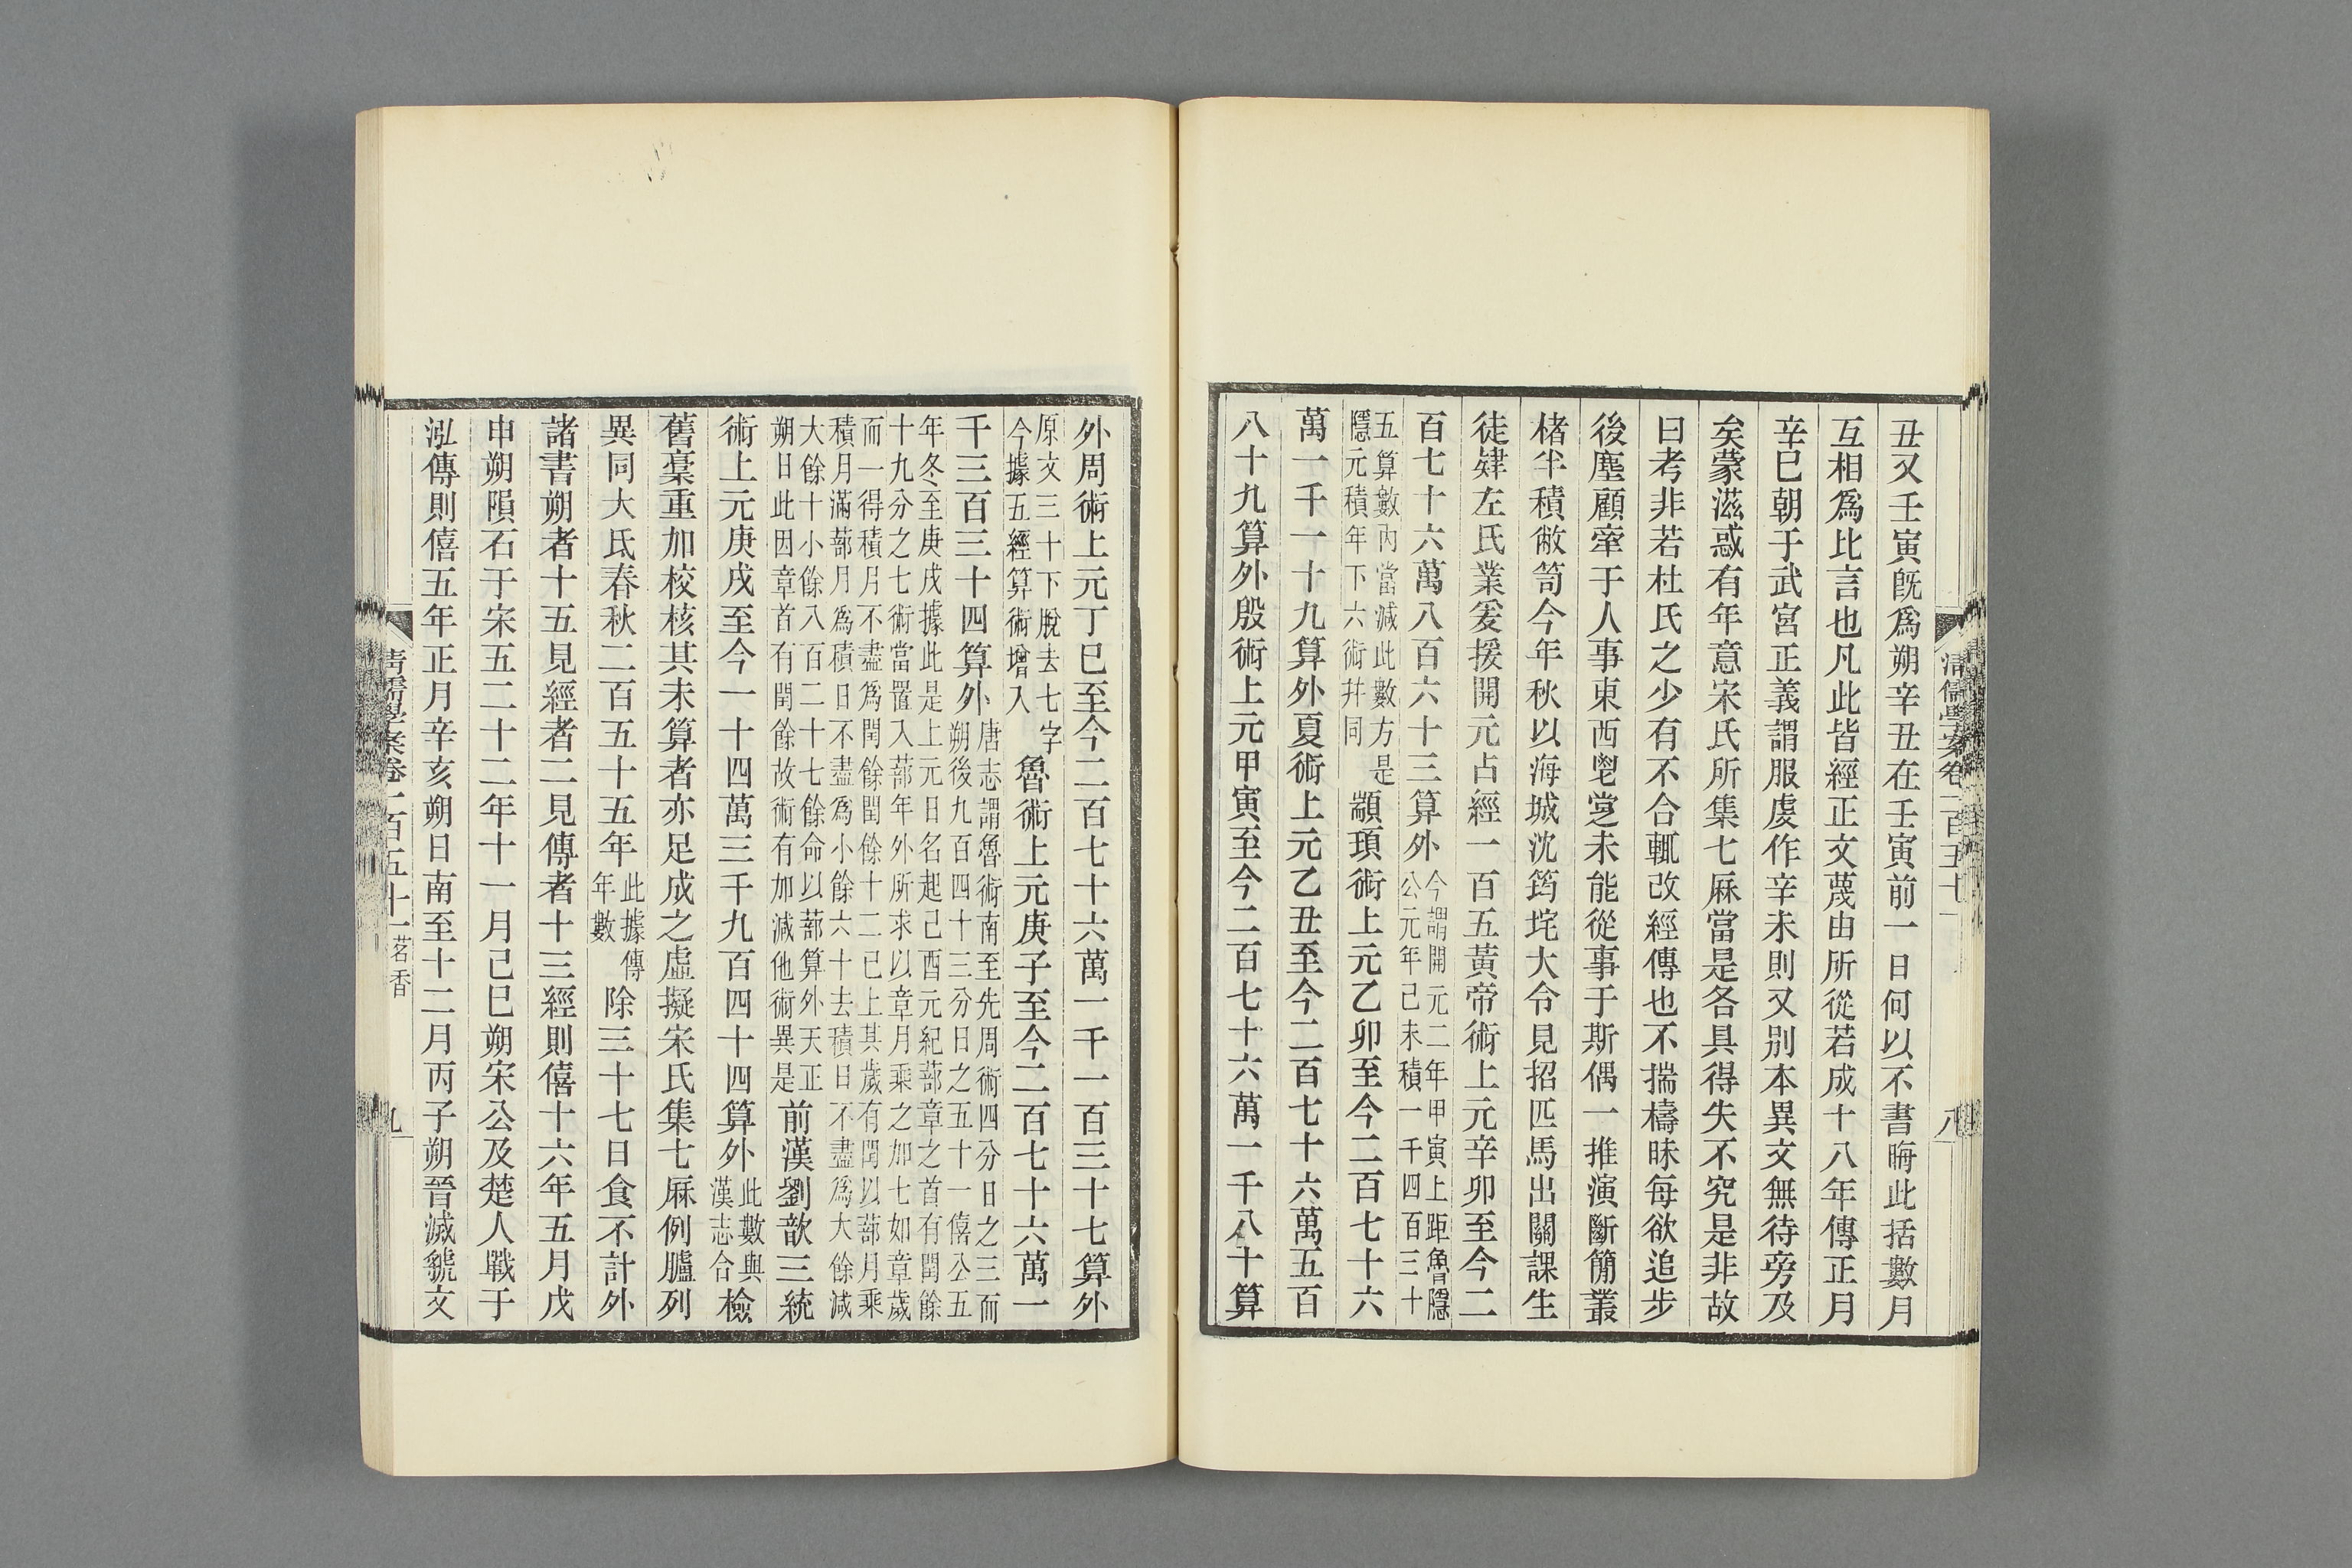 丑又壬寅旣爲朔辛丑在壬寅前一日何以不書晦此括數月
互相爲比言也凡此皆經正文蔑由所從若成十八年傳正月
辛巳朝于武宮正義謂服虔作辛未則又別本異文無待旁及
矣蒙滋惑有年意宋氏所集七厤當是各具得失不究是非故
曰考非若杜氏之少有不合輒改經傳也不揣檮昧每欲追步
後塵顧牽于人事東西鬼
未能從事于斯偶一推演斷簡叢
楮半積敝笥今年秋以海城沈筠垞大令見招匹馬出關課生
徒肄左氏業爰援開元占經一百五黃帝術上元辛卯至今二
百七十六萬八百六十三算外
今謂開元二年甲寅上距魯隱
公元年己未積一千四百三十
五算數內當減此數方是
隱元積年下六術幷同
顓頊術上元乙卯至今二百七十六
萬一千一十九算外夏術上元乙丑至今二百七十六萬五百
八十九算外殷術上元甲寅至今二百七十六萬一千八十算
清儒學案卷一百五十七
八
外周術上元丁巳至今二百七十六萬一千一百三十七算外
原文三十下脫去七字
今據五經算術增入
魯術上元庚子至今二百七十六萬一
千三百三十四算外
唐志謂魯術南至先周術四分日之三而
朔後九百四十三分日之五十一僖公五
年冬至庚戌據此是上元日名起己酉元紀蔀章之首有閏餘
十九分之七術當置入蔀年外所求以章月乘之加七如章歲
而一得積月不盡爲閏餘閏餘十二已上其歲有閏以蔀月乘
積月滿蔀月爲積日不盡爲小餘六十去積日不盡爲大餘減
大餘十小餘八百二十七餘命以蔀算外天正
朔日此因章首有閏餘故術有加減他術異是
前漢劉歆三統
術上元庚戌至今一十四萬三千九百四十四算外
此數與
漢志合
檢
舊稾重加校核其未算者亦足成之虛擬宋氏集七厤例臚列
異同大氐春秋二百五十五年
此據傳
年數
除三十七日食不計外
諸書朔者十五見經者二見傳者十三經則僖十六年五月戊
申朔隕石于宋五二十二年十一月己巳朔宋公及楚人戰于
泓傳則僖五年正月辛亥朔日南至十二月丙子朔晉滅虢文
清儒學案卷一百五十七
茗香
九